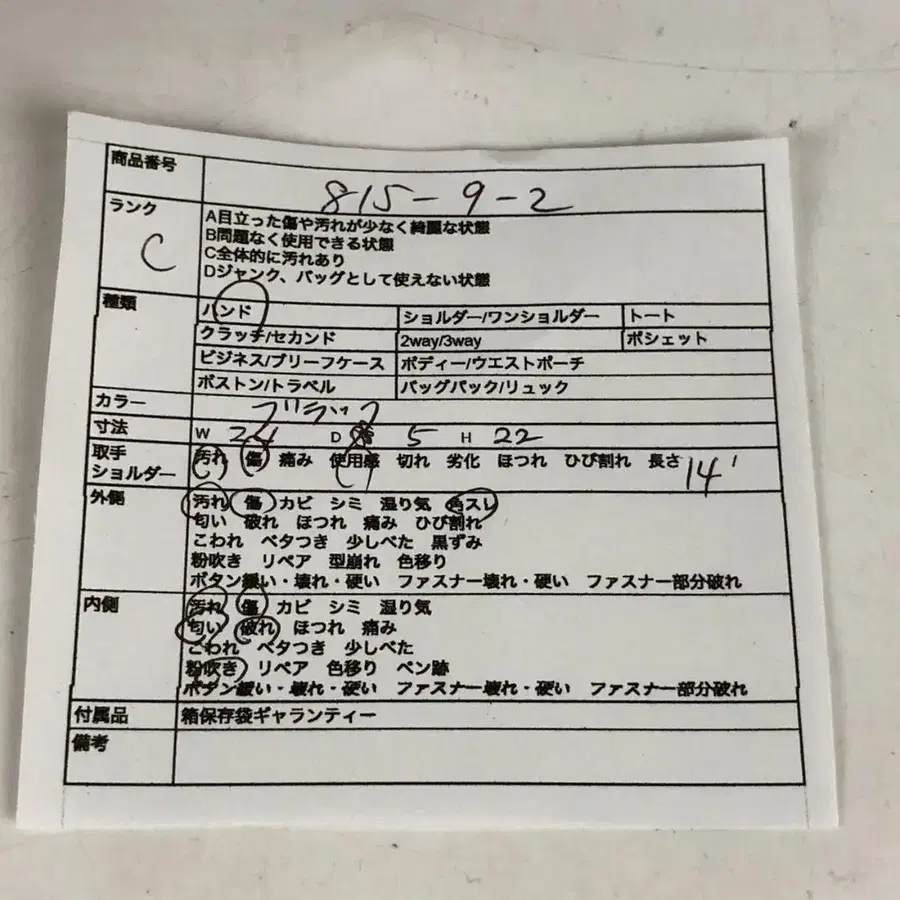 商品番号 815-9-2
ランク C
A目立った傷や汚れが少なく綺麗な状態
B問題なく使用できる状態
C全体的に汚れあり
Dジャンク、バッグとして使えない状態
種類 ハンド ショルダー/ワンショルダー トート
クラッチ/セカンド 2way/3way ポシェット
ビジネス/ブリーフケース ボディー/ウエストポーチ
ボストン/トラベル バッグパック/リュック
カラー ブラック
寸法 W 24 D 5 H 22
取手 汚れ 傷 痛み 使用感 切れ 劣化 ほつれ ひび割れ 長さ 14
ショルダー
外側 汚れ 傷 カビ シミ 湿り気 角スレ
匂い 破れ ほつれ 痛み ひび割れ
こわれ ベタつき 少しべた 黒ずみ
粉吹き リペア 型崩れ 色移り
ボタン緩い・壊れ・硬い ファスナー壊れ・硬い ファスナー部分破れ
内側 汚れ 傷 カビ シミ 湿り気
匂い 破れ ほつれ 痛み
こわれ ベタつき 少しべた
粉吹き リペア 色移り ペン跡
ボタン緩い・壊れ・硬い ファスナー壊れ・硬い ファスナー部分破れ
付属品 箱保存袋ギャランティー
備考